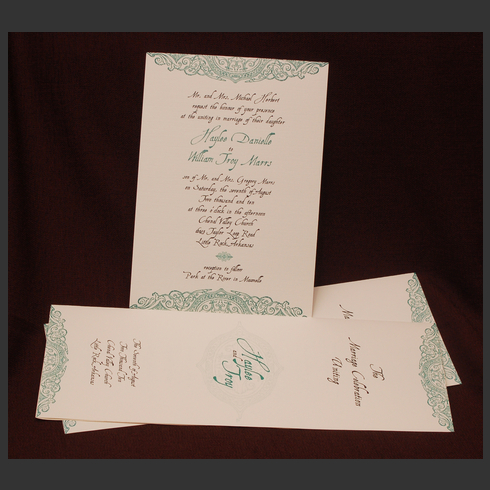 Mr. and Mrs. Michael Herbert
request the honour of your presence
at the uniting in marriage of their daughter
Haylee Danielle
to
William Troy Marrs
son of Mr. and Mrs. Gregory Marrs
on Saturday, the seventh of August
Two thousand and ten
at three o'clock in the afternoon
Chenal Valley Church
Taylor Loop Road
Little Rock, Arkansas
reception to follow
Park at the River in Maumelle
The Seventh of August
Two Thousand Ten
Chenal Valley Church
Little Rock, Arkansas
Haylee
and
Troy
The
Marriage Celebration
Uniting